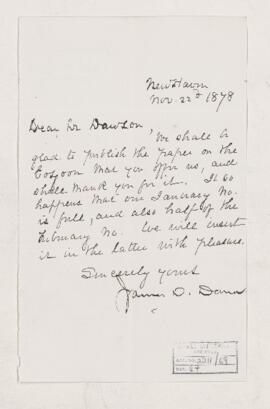 New Haven
Nov. 22d 1878
Dear Dr Dawson,
We shall be
glad to publish the paper on the
Eozoon that you offer us, and
shall thank you for it. It so
happens that our January No.
is full, and also half of the
February No. We will insert
it in the latter with pleasure.
Sincerely yours
James D. Dana